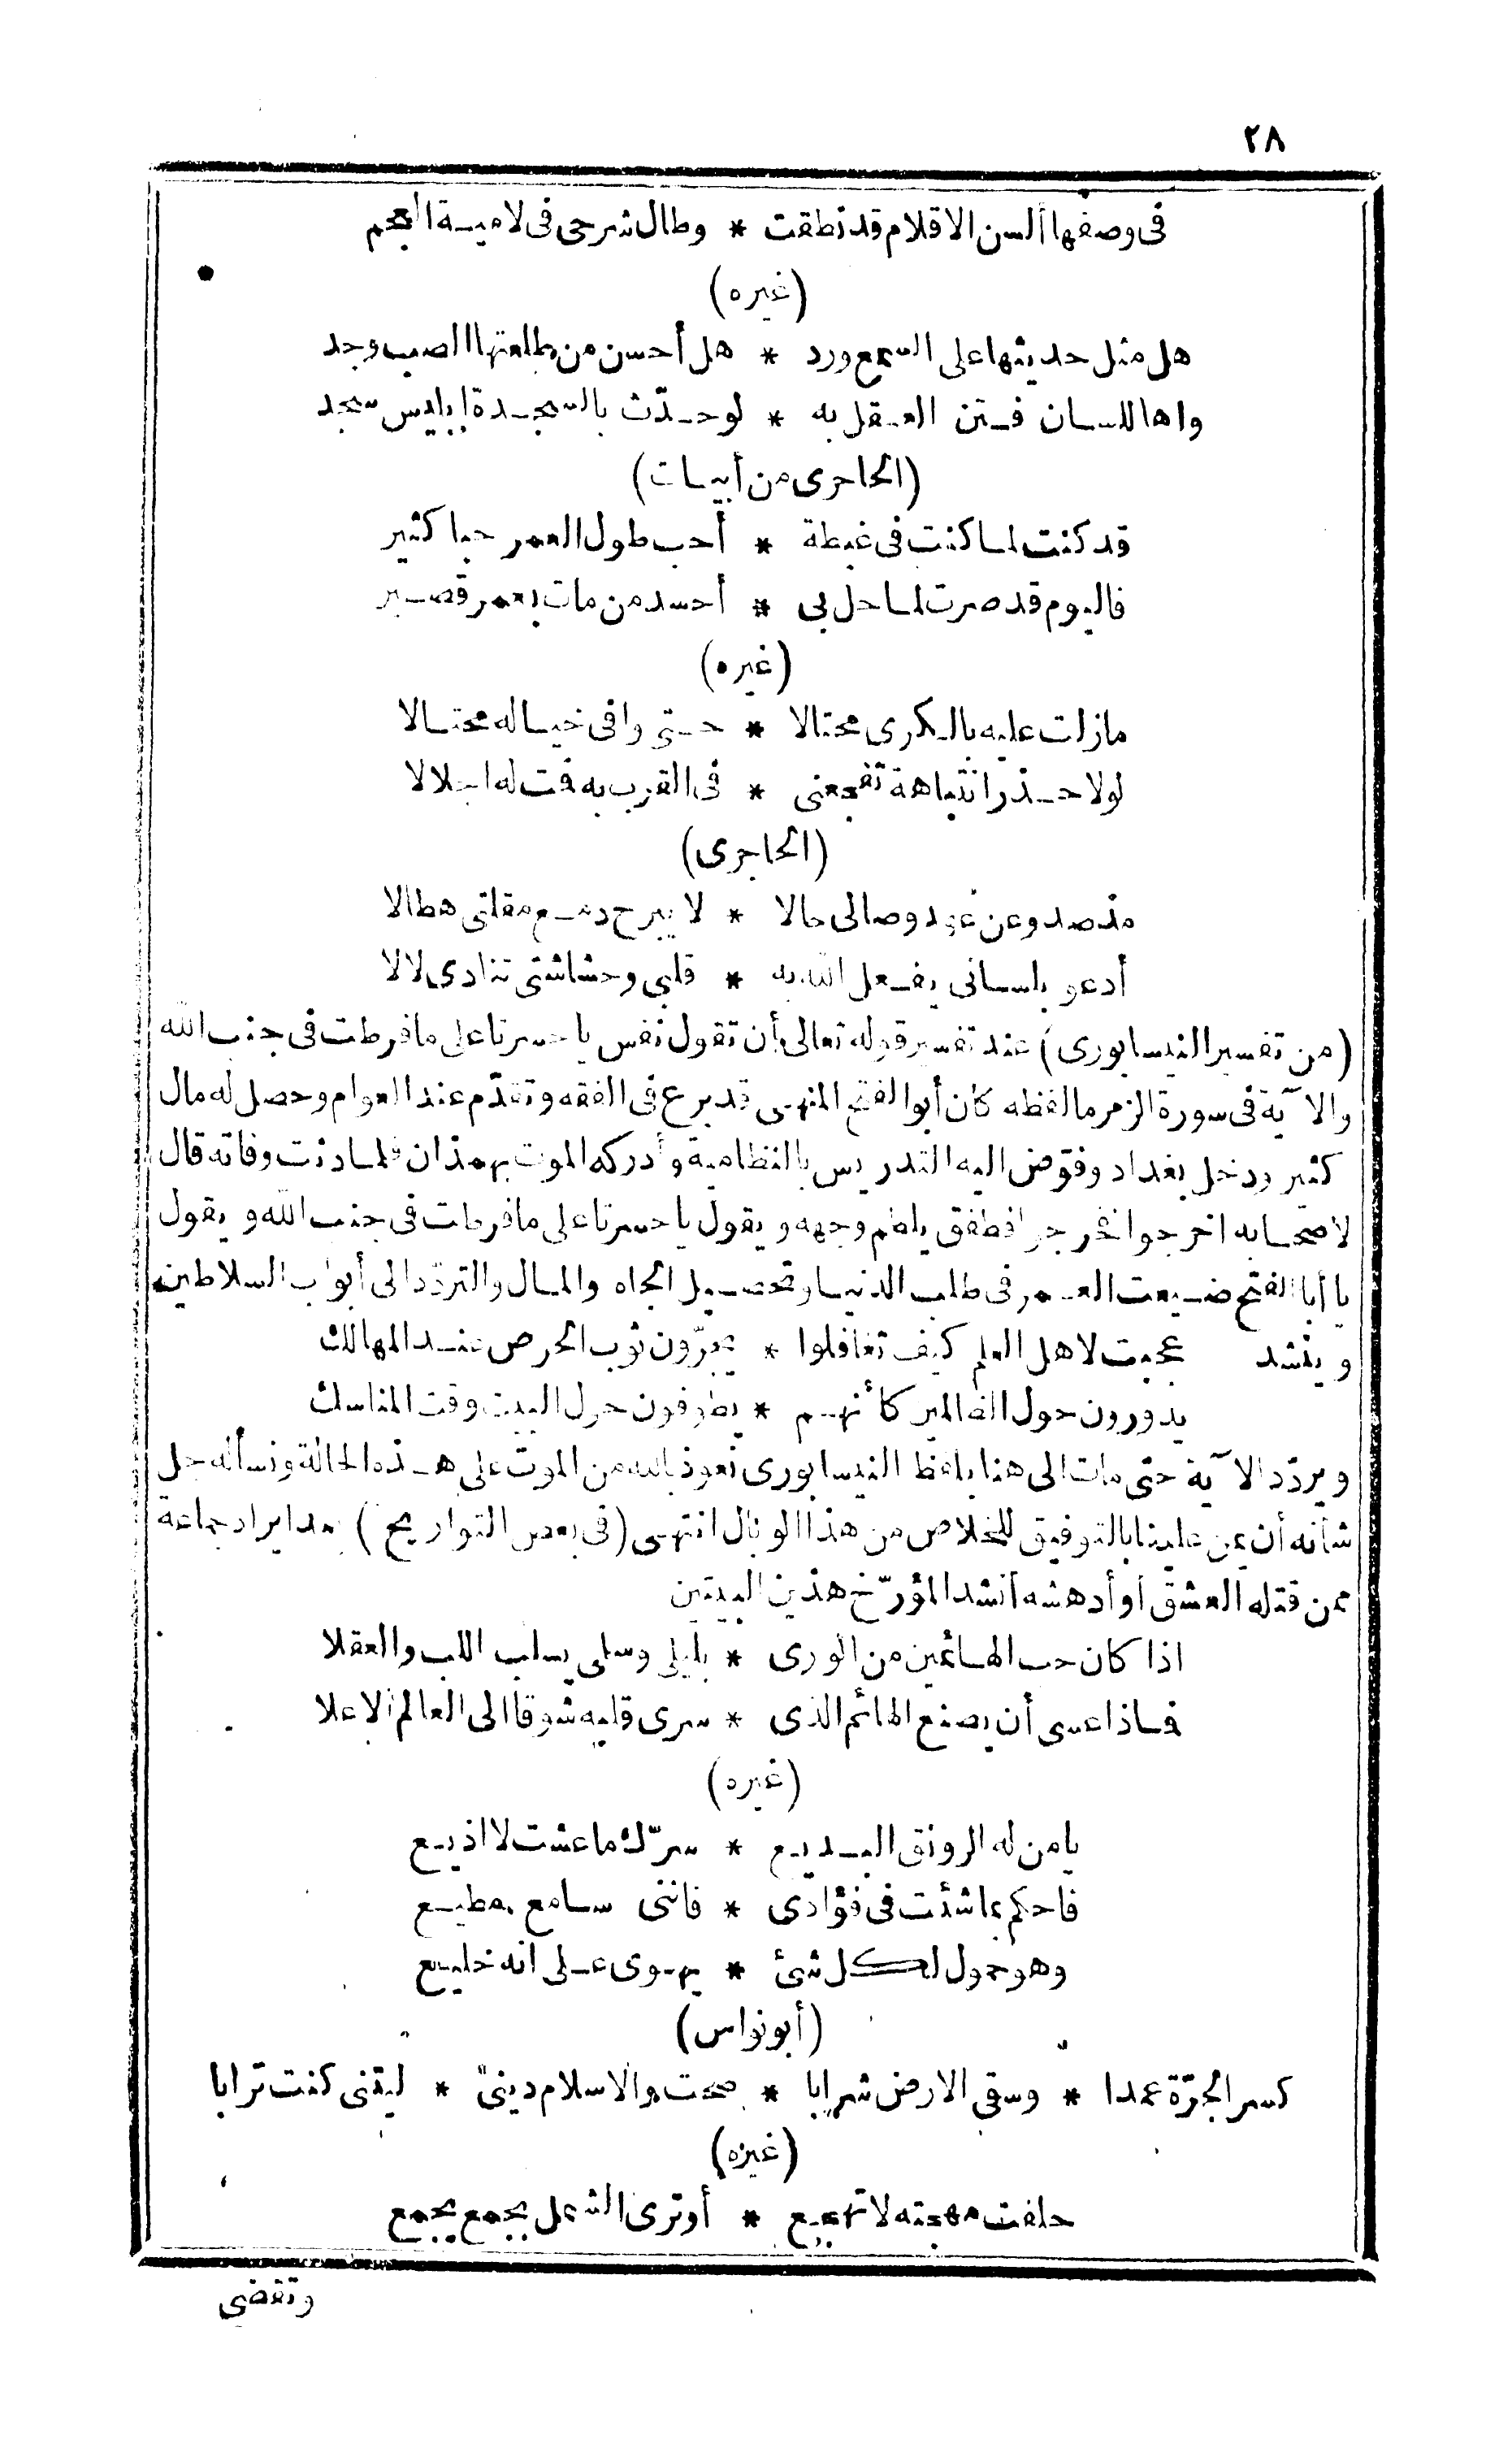 ٢٨
فى وصفها ألسن الاقلام قد نطقت * وطال شرحى فى لامية العجم
(غيره)
هل مثل حديثها على السمع ورد * هل أحسن من طلعتها الصب وجد
واها للسان فتن العقل به * لو حدّث بالسجدة ابليس سجد
(الحاجرى من أبيات)
قد كنت لما كنت فى غبطة * أحب طول العمر حبا كثير
فاليوم قد صرت لما حل بى * أحسد من مات بعمر قصير
(غيره)
مازلت عليه بالكرى محتالا * حتى وافى خياله مختالا
لولا حذر انتباهة تفجعنى * فى القرب به قمت له اجلالا
(الحاجرى)
مذ صد وعن عهد وصالى حالا * لا يبرح دمع مقلتى هطالا
أدعو بلسانى يفعل الله به * قلبى وحشاشتى تنادى لالا
(من تفسير النيسابورى) عند تفسير قوله تعالى أن تقول نفس يا حسرتا على ما فرطت فى جنب الله
والآية فى سورة الزمر ما لفظه كان أبو الفتح المنهى قد برع فى الفقه وتقدّم عند العوام وحصل له مال
كثير ودخل بغداد وفوّض اليه التدريس بالنظامية وأدركه الموت بهمذان فلما دنت وفاته قال
لاصحابه اخرجوا فخرجوا فطفق يلطم وجهه ويقول يا حسرتا على ما فرطت فى جنب الله ويقول
يا أبا الفتح ضيعت العمر فى طلب الدنيا وتحصيل الجاه والمال والتردّد الى أبواب السلاطين
وينشد عجبت لاهل العلم كيف تغافلوا * يجرّون ثوب الحرص عند المهالك
يدورون حول الظالمين كأنهم * يطوفون حول البيت وقت المناسك
ويردّد الآية حتى مات الى هنا بلفظ النيسابورى نعوذ بالله من الموت على هذه الحالة ونسأله جل
شأنه أن يمن علينا بالتوفيق للخلاص من هذا الوبال انتهى (فى بعض التواريخ) بعد ايراد جماعة
ممن قتله العشق أو أدهشه أنشد المؤرّخ هذين البيتين
اذا كان حب الهائمين من الورى * بليلى وسلمى يسلب اللب والعقلا
فماذا عسى أن يصنع الهائم الذى * سرى قلبه شوقا الى العالم الاعلا
(غيره)
يا من له الرونق البديع * سرّك ما عشت لا اذيع
فاحكم بما شئت فى فؤادى * فاننى سامع مطيع
وهو حمول لكل شئ * يهوى على انه خليع
(أبو نواس)
كسر الجرّة عمدا * وسقى الارض شرابا * صحت والاسلام دينى * ليتنى كنت ترابا
(غيره)
حلفت مهجته لا تهجع * أو ترى الشمل بجمع يجمع
وتقضى